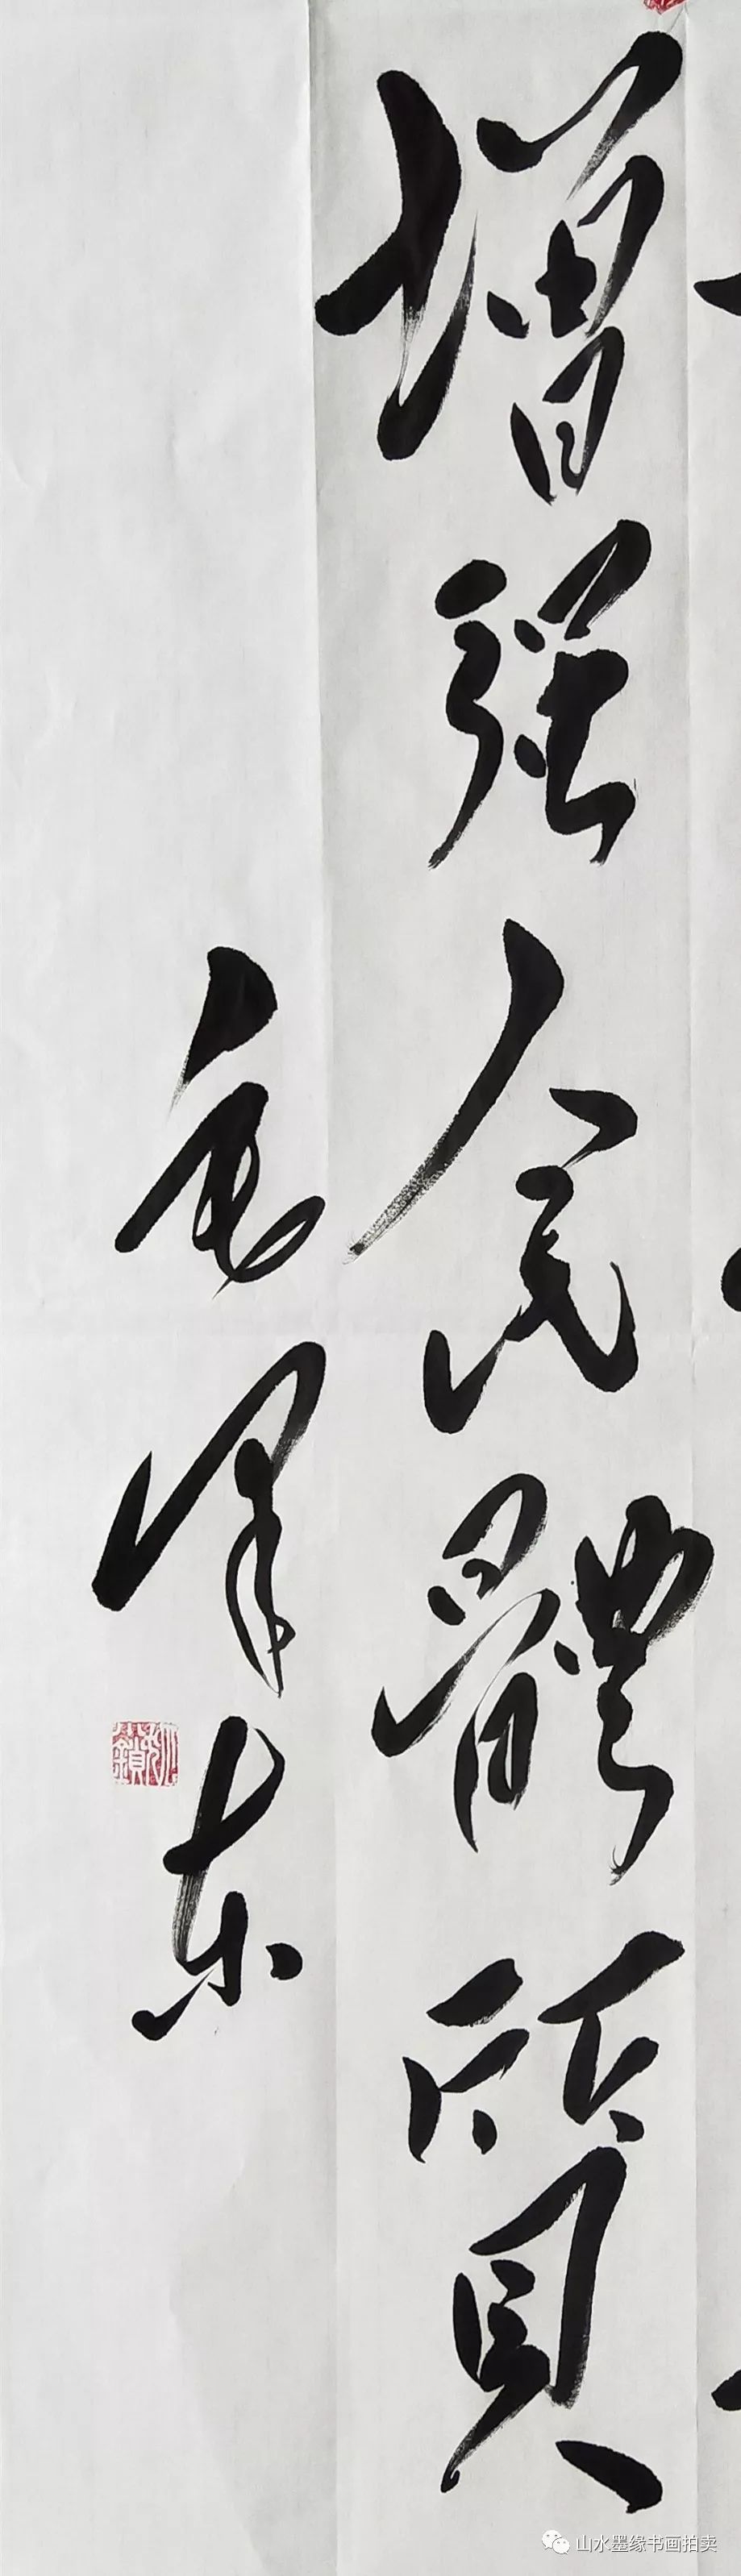 增强人民體質
毛泽东
山水墨缘书画拍卖